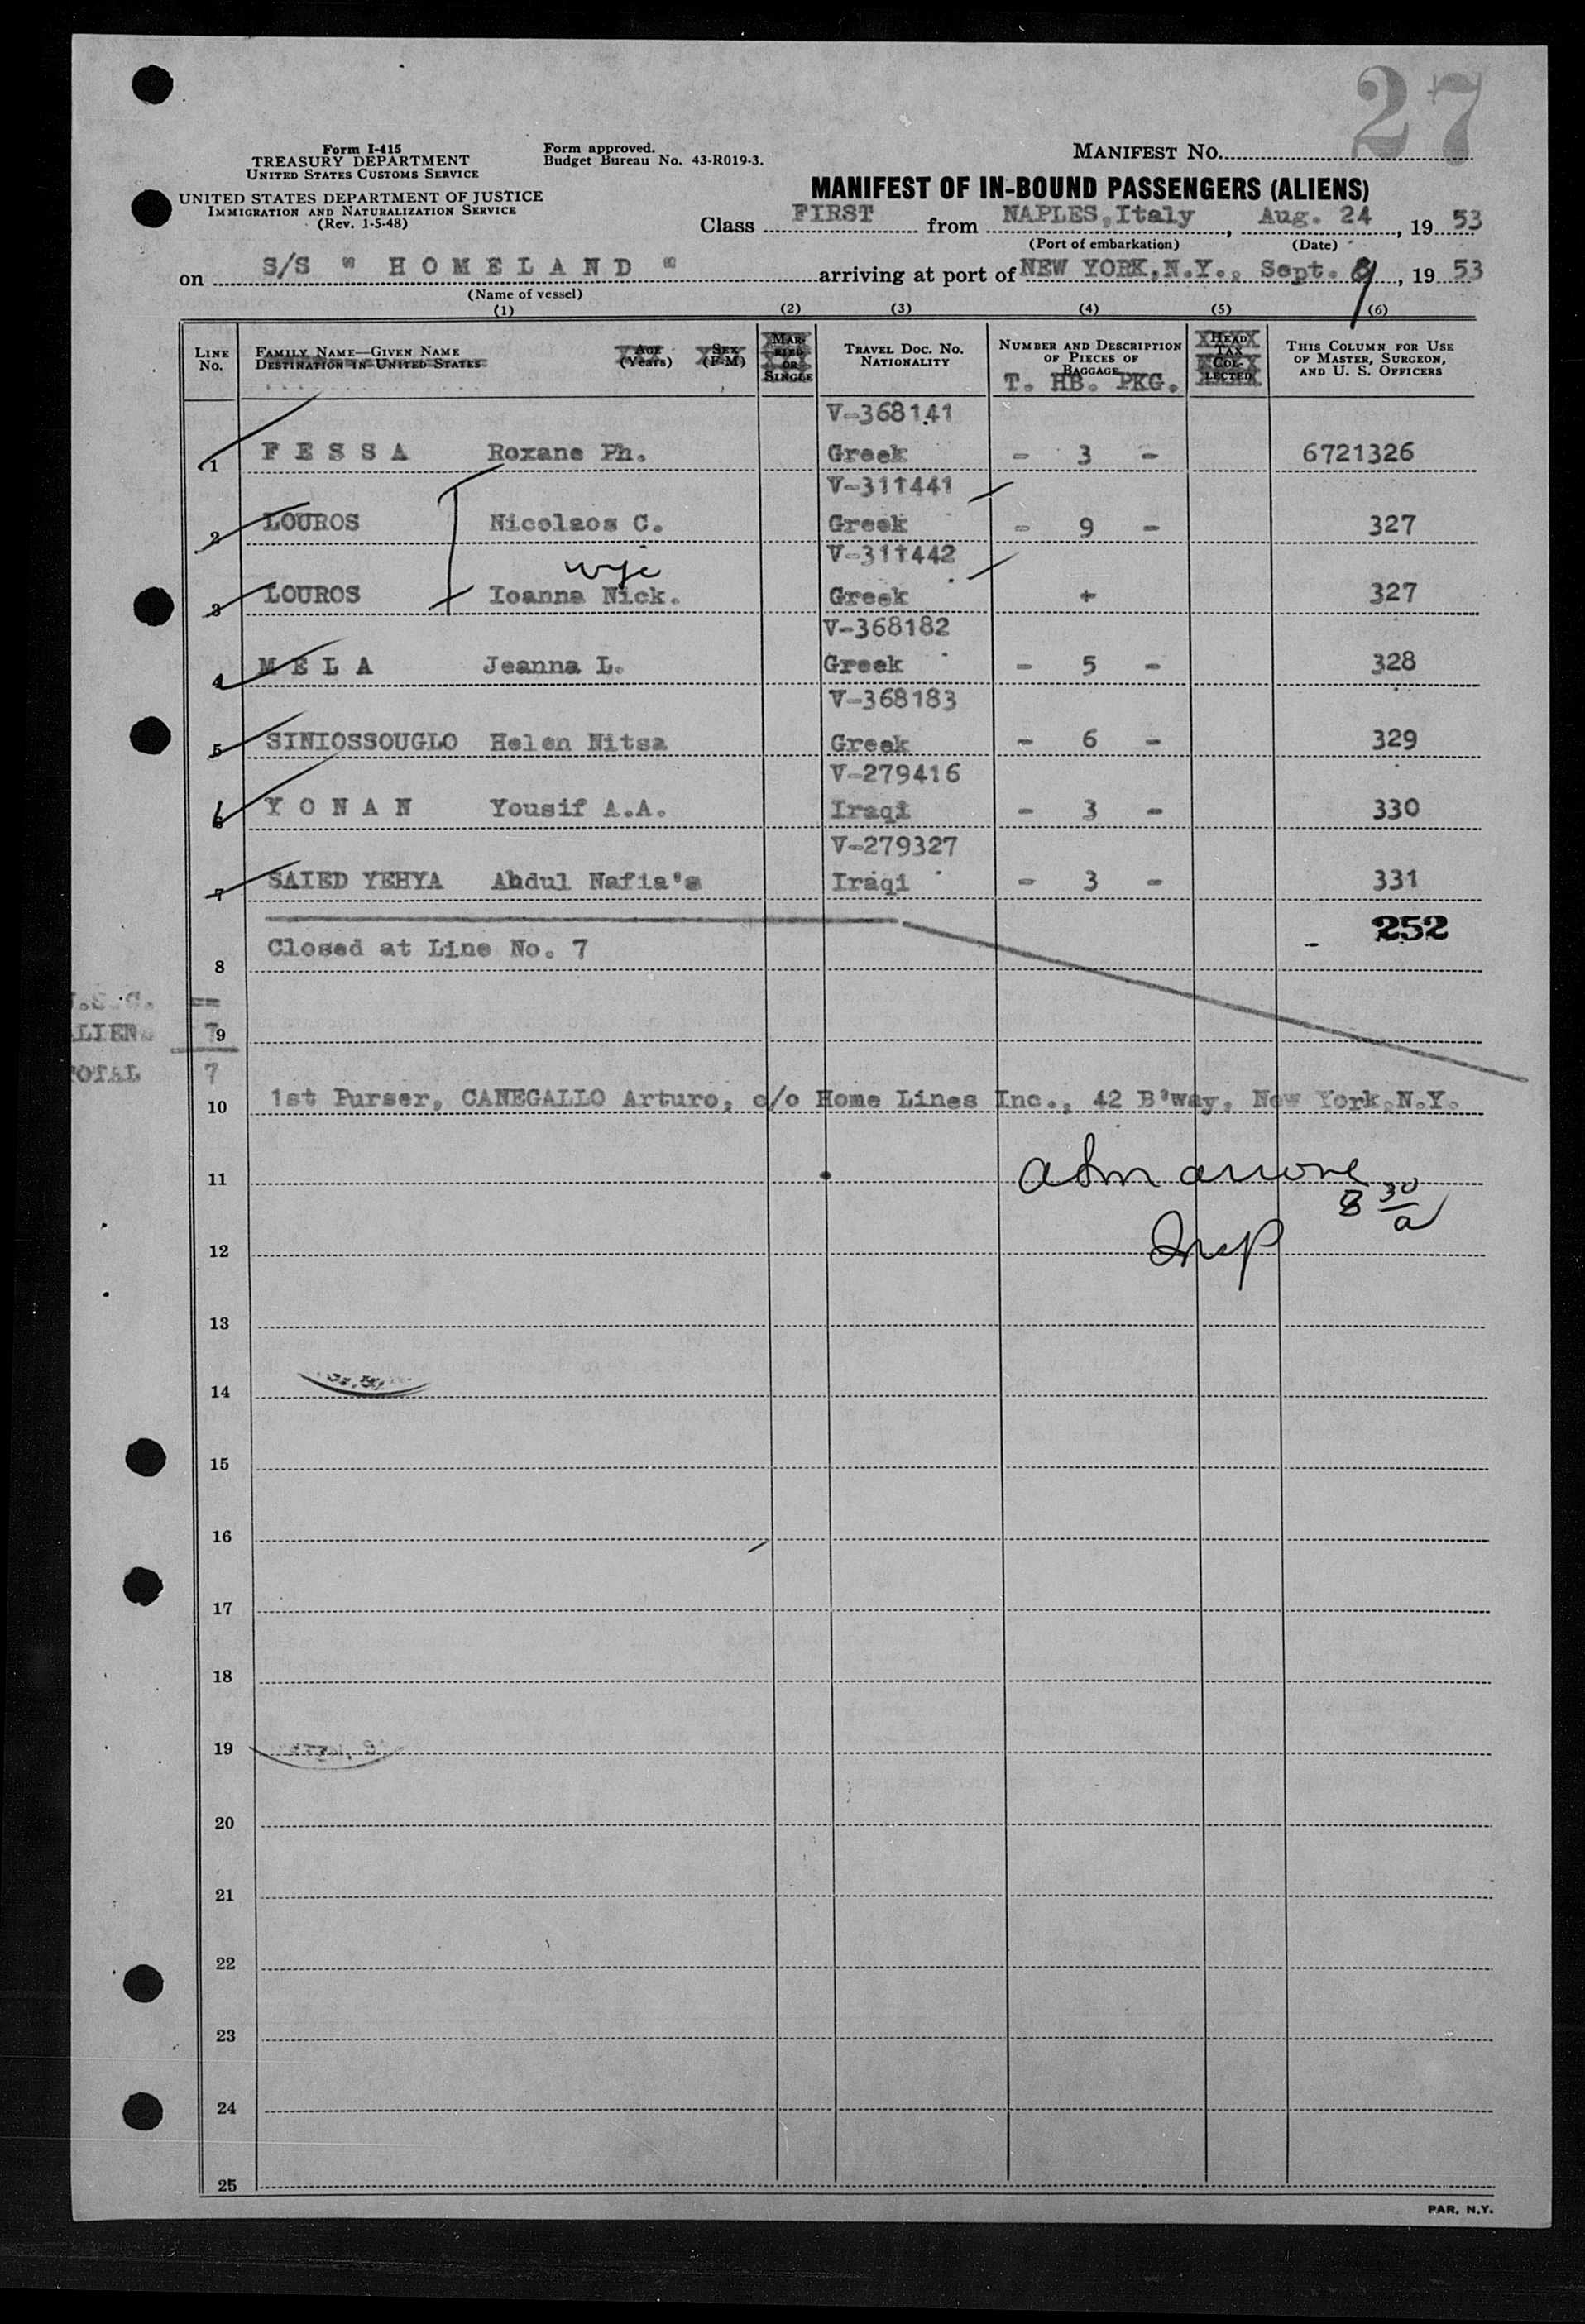 27
Form I-415
TREASURY DEPARTMENT
UNITED STATES CUSTOMS SERVICE
UNITED STATES DEPARTMENT OF JUSTICE
IMMIGRATION AND NATURALIZATION SERVICE
(Rev. 1-5-48)
Form approved.
Budget Bureau No. 43-R019-3.
MANIFEST NO.
MANIFEST OF IN-BOUND PASSENGERS (ALIENS)
Class FIRST from NAPLES,Italy, Aug. 24, 19 53
(Port of embarkation) (Date)
on S/S " H O M E L A N D " arriving at port of NEW YORK,N.Y., Sept. 9, 19 53
(Name of vessel)
(1) (2) (3) (4) (5) (6)
LINE No.
FAMILY NAME—GIVEN NAME
DESTINATION IN UNITED STATES
AGE (Years)
SEX (F-M)
MARRIED OR SINGLE
TRAVEL DOC. NO. NATIONALITY
NUMBER AND DESCRIPTION OF PIECES OF BAGGAGE
T. HB. PKG.
HEAD TAX COLLECTED
THIS COLUMN FOR USE OF MASTER, SURGEON, AND U. S. OFFICERS
V-368141
1 F E S S A Roxane Ph. Greek - 3 - 6721326
V-311441
2 LOUROS Nicolaos C. Greek - 9 - 327
wife V-311442
3 LOUROS Ioanna Nick. Greek + 327
V-368182
4 M E L A Jeanna L. Greek - 5 - 328
V-368183
5 SINIOSSOUGLO Helen Nitsa Greek - 6 - 329
V-279416
6 Y O N A N Yousif A.A. Iraqi - 3 - 330
V-279327
7 SAIED YEHYA Abdul Nafia's Iraqi - 3 - 331
- 252
8 Closed at Line No. 7
U.S.C. ==
ALIENS 7
9
TOTAL 7
10 1st Purser, CANEGALLO Arturo, c/o Home Lines Inc., 42 B'way, New York,N.Y.
11
8 30/a
12 Insp
13
14
15
16
17
18
19
20
21
22
23
24
25
PAR, N.Y.